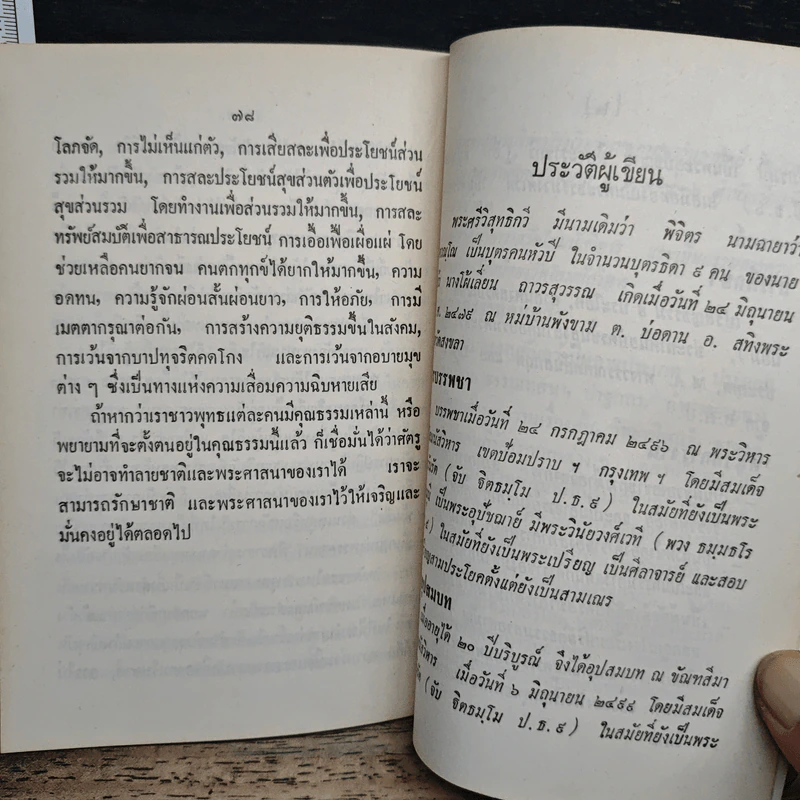 ๗๘
โลภจัด, การไม่เห็นแก่ตัว, การเสียสละเพื่อประโยชน์ส่วน
รวมให้มากขึ้น, การสละประโยชน์สุขส่วนตัวเพื่อประโยชน์
สุขส่วนรวม โดยทำงานเพื่อส่วนรวมให้มากขึ้น, การสละ
ทรัพย์สมบัติเพื่อสาธารณประโยชน์ การเอื้อเฟื้อเผื่อแผ่ โดย
ช่วยเหลือคนยากจน คนตกทุกข์ได้ยากให้มากขึ้น, ความ
อดทน, ความรู้จักผ่อนสั้นผ่อนยาว, การให้อภัย, การมี
เมตตากรุณาต่อกัน, การสร้างความยุติธรรมขึ้นในสังคม,
การเว้นจากบาปทุจริตคดโกง และการเว้นจากอบายมุข
ต่าง ๆ ซึ่งเป็นทางแห่งความเสื่อมความฉิบหายเสีย
ถ้าหากว่าเราชาวพุทธแต่ละคนมีคุณธรรมเหล่านี้ หรือ
พยายามที่จะตั้งตนอยู่ในคุณธรรมนี้แล้ว ก็เชื่อมั่นได้ว่าศัตรู
จะไม่อาจทำลายชาติและพระศาสนาของเราได้ เราจะ
สามารถรักษาชาติ และพระศาสนาของเราไว้ให้เจริญและ
มั่นคงอยู่ได้ตลอดไป
ประวัติผู้เขียน
พระศรีวิสุทธิกวี มีนามเดิมว่า พิจิตร นามฉายาว่า
เป็นบุตรคนหัวปี ในจำนวนบุตรธิดา ๙ คน ของนาย
นางไผ้เลี่ยน ถาวรสุวรรณ เกิดเมื่อวันที่ ๒๔ มิถุนายน
๒๔๗๙ ณ หมู่บ้านพังขาม ต. บ่อดาน อ. สทิงพระ
สงขลา
บรรพชา
บรรพชาเมื่อวันที่ ๒๔ กรกฎาคม ๒๔๙๖ ณ พระวิหาร
เขตป้อมปราบ ฯ กรุงเทพ ฯ โดยมีสมเด็จ
(จับ ฐิตธมฺโม ป.ธ.๙) ในสมัยที่ยังเป็นพระ
เป็นพระอุปัชฌาย์ มีพระวินัยวงศ์เวที (พวง ธมฺมธโร
ในสมัยที่ยังเป็นพระเปรียญ เป็นศีลาจารย์ และสอบ
สามประโยคตั้งแต่ยังเป็นสามเณร
อุปสมบท
เมื่ออายุได้ ๒๐ ปีบริบูรณ์ จึงได้อุปสมบท ณ ขัณฑสีมา
วิหาร เมื่อวันที่ ๖ มิถุนายน ๒๔๙๙ โดยมีสมเด็จ
(จับ ฐิตธมฺโม ป.ธ.๙) ในสมัยที่ยังเป็นพระ